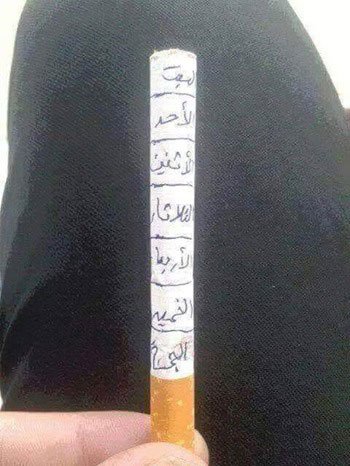 السبت
الأحد
الأثنين
الثلاثاء
الأربعاء
الخميس
الجمعة